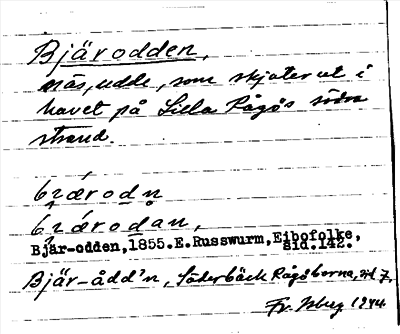 Bjärodden,
näs, udde, som skjuter ut i
havet på Lilla Rågös södra
strand.
bɹǽrodn̥
bɹǽrodan,
Bjär-odden,1855.E.Russwurm,Eibofolke,
sid.142.
Bjär-ådd'n, Söderbäck Rågöborna, sid 7.
Fr. 1944